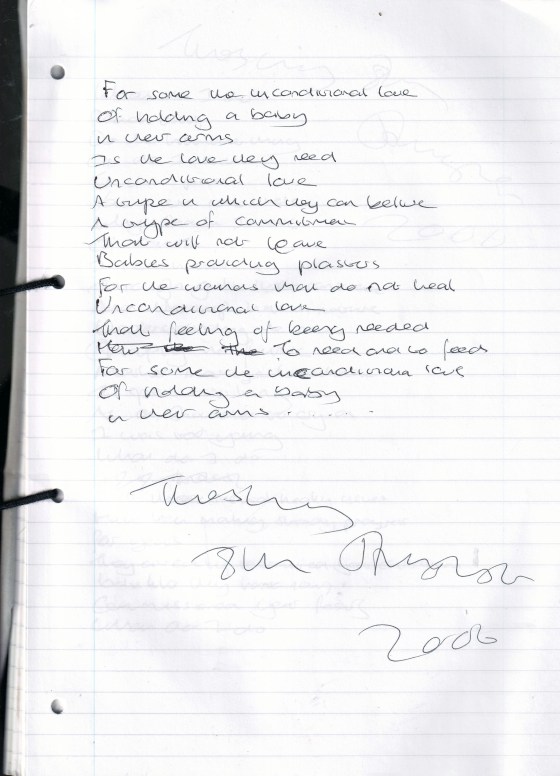 For some the unconditional love
Of holding a baby
in their arms
Is the love they need
Unconditional love
A type in which they can belive
A type of commitment
That will not leave
Babies providing plasters
For the wounds that do not heal
Unconditional love
That feeling of being needed
How the To need and to feed
For some the unconditional love
Of holding a baby
in their arms . . . . .
Tuesday
8th August
2006